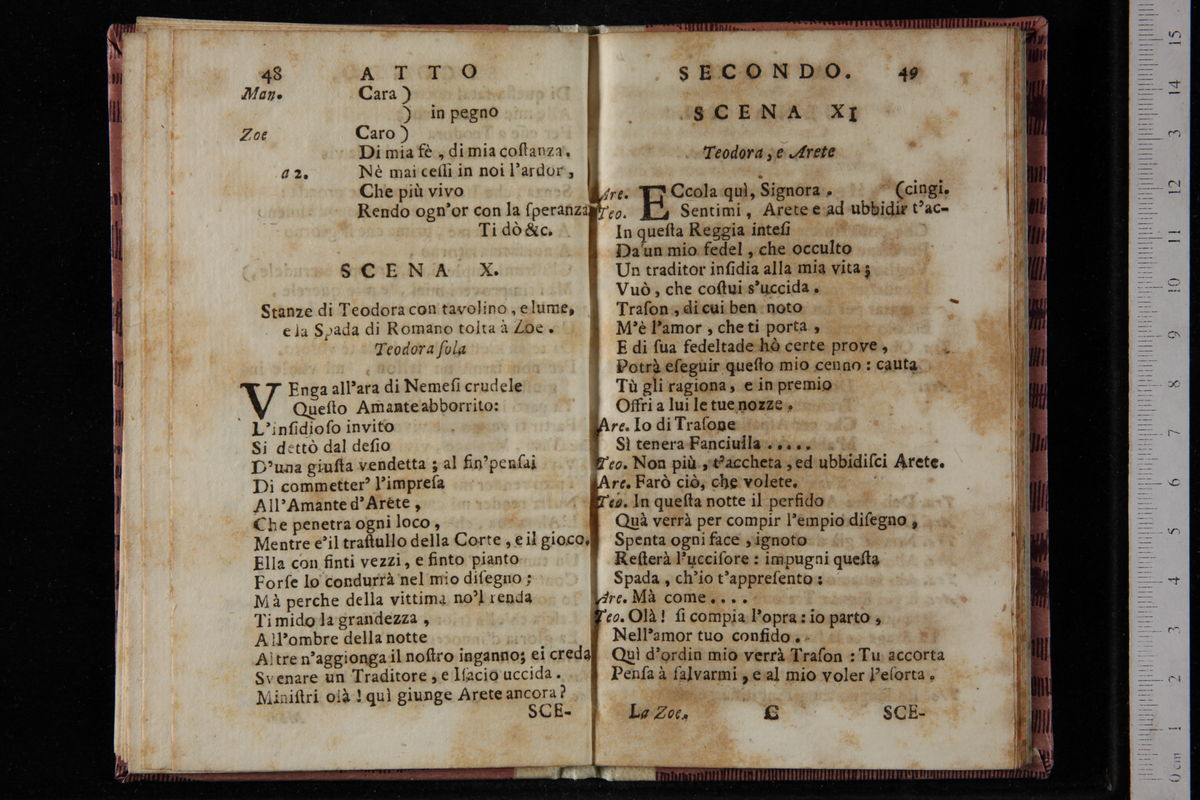 48 ATTO
Man. Cara )
) in pegno
Zoe Caro )
Di mia fè , di mia coſtanza.
a 2. Nè mai ceſſi in noi l'ardor ,
Che più vivo
Rendo ogn'or con la ſperanza
Ti dò &c.
SCENA X.
Stanze di Teodora con tavolino , e lume,
e la Spada di Romano tolta à Zoe .
Teodora ſola
VEnga all'ara di Nemeſi crudele
Queſto Amante abborrito:
L'inſidioſo invito
Si dettò dal deſio
D'una giuſta vendetta ; al fin'penſai
Di commetter' l'impreſa
All'Amante d'Arete ,
Che penetra ogni loco ,
Mentre e'il traſtullo della Corte , e il gioco.
Ella con finti vezzi, e finto pianto
Forſe lo condurrà nel mio diſegno ;
Mà perche della vittima no'l renda
Timido la grandezza ,
All'ombre della notte
Altre n'aggionga il noſtro inganno; ei creda
Svenare un Traditore , e Iſacio uccida .
Miniſtri olà ! quì giunge Arete ancora ?
SCE-
SECONDO. 49
SCENA XI
Teodora, e Arete
Are. ECcola quì, Signora . (cingi.
Teo. Sentimi, Arete e ad ubbidir t'ac-
In queſta Reggia inteſi
Da un mio fedel , che occulto
Un traditor inſidia alla mia vita ;
Vuò , che coſtui s'uccida .
Traſon , di cui ben noto
M'è l'amor , che ti porta ,
E di ſua fedeltade hò certe prove ,
Potrà eſeguir queſto mio cenno : cauta
Tù gli ragiona, e in premio
Offri a lui le tue nozze .
Are. Io di Traſone
Sì tenera Fanciulla . . . . .
Teo. Non più , t'accheta , ed ubbidiſci Arete.
Are. Farò ciò, che volete.
Teo. In queſta notte il perfido
Quà verrà per compir l'empio diſegno ,
Spenta ogni face , ignoto
Reſterà l'ucciſore : impugni queſta
Spada , ch'io t'appreſento :
Are. Mà come . . . .
Teo. Olà ! ſi compia l'opra : io parto ,
Nell'amor tuo confido .
Quì d'ordin mio verrà Traſon : Tu accorta
Penſa à ſalvarmi , e al mio voler l'eſorta .
La Zoe. C SCE-
0 cm 1 2 3 4 5 6 7 8 9 10 11 12 13 14 15